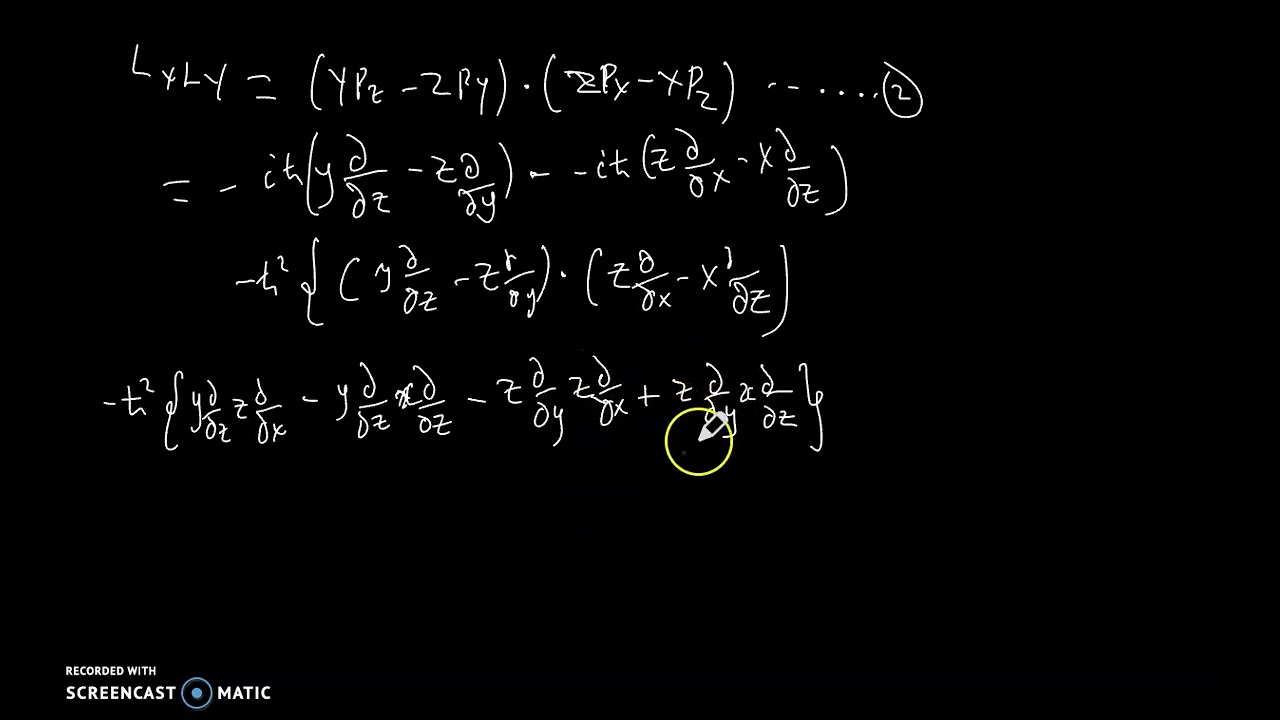 LxLy = (YPz - ZPy) · (ZPx - XPz) ........ ②
= - iħ(y ∂/∂z - z ∂/∂y) - - iħ (z ∂/∂x - x ∂/∂z)
-ħ² { (y ∂/∂z - z ∂/∂y) · (z ∂/∂x - x ∂/∂z)
-ħ² { y ∂/∂z z ∂/∂x - y ∂/∂z x ∂/∂z - z ∂/∂y z ∂/∂x + z ∂/∂y x ∂/∂z }
RECORDED WITH
SCREENCAST MATIC